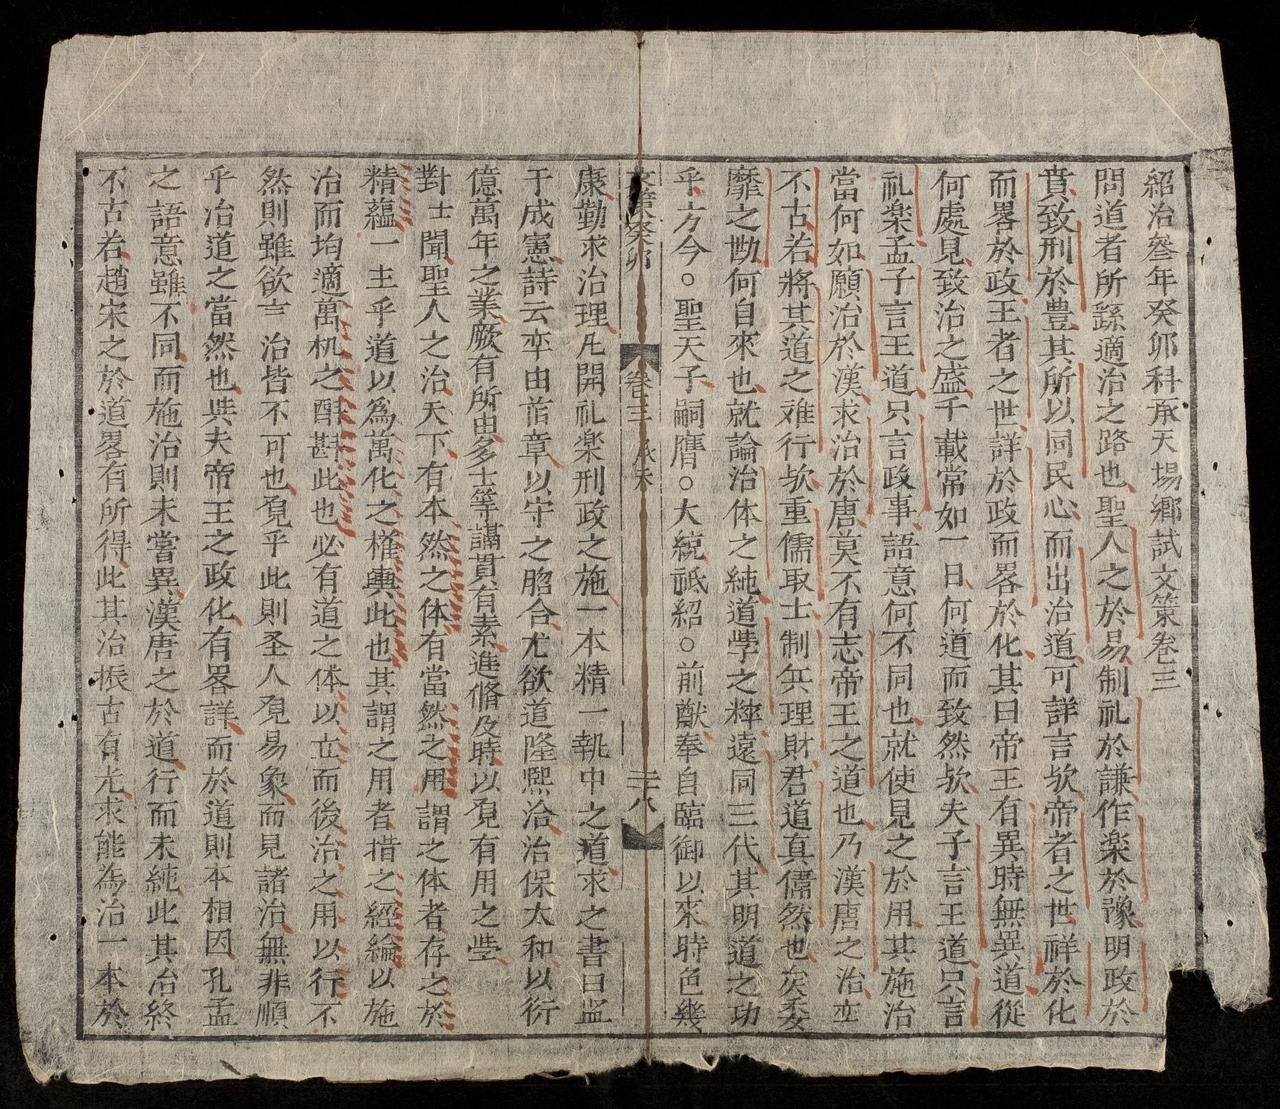 紹治參年癸卯科承天場鄉試文策卷三
問道者所繇適治之路也聖人之於易制礼於謙作楽於豫明政於
賁致刑於豊其所以同民心而出治道可詳言欤帝者之世祥於化
而畧於政王者之世詳於政而畧於化其曰帝王有異時無異道從
何處見致治之盛千載常如一日何道而致然欤夫子言王道只言
礼楽孟子言王道只言政事語意何不同也就使見之於用其施治
當何如願治於漢求治於唐莫不有志帝王之道也乃漢唐之治卒
不古若將其道之难行欤重儒取士制兵理財君道真儒然也矣委
靡之勘何自來也就論治体之純道學之粹遠同三代其明道之功
乎方今○聖天子嗣膺○大統祗紹○前猷奉自臨御以來時色幾
文策癸卯 卷三 二十八
康勤求治理凡開礼楽刑政之施一本精一執中之道求之書曰监
于成憲詩云率由旧章以守之脗合尤欲道隆熙洽治保太和以衍
億萬年之業厥有所由多士等講貫有素進脩及時以覔有用之些
對士聞聖人之治天下有本然之体有當然之用謂之体者存之於
精蘊一主乎道以為萬化之權輿此也其謂之用者措之經綸以施
治而均適萬机之酬斟此也必有道之体以立而後治之用以行不
然則雖欲言治皆不可也覔乎此則圣人覔易象而見諸治無非順
乎治道之當然也與夫帝王之政化有畧詳而於道則本相因孔孟
之語意雖不同而施治則未嘗異漢唐之於道行而未純此其治終
不古若趙宋之於道畧有所得此其治振古有光求能為治一本於